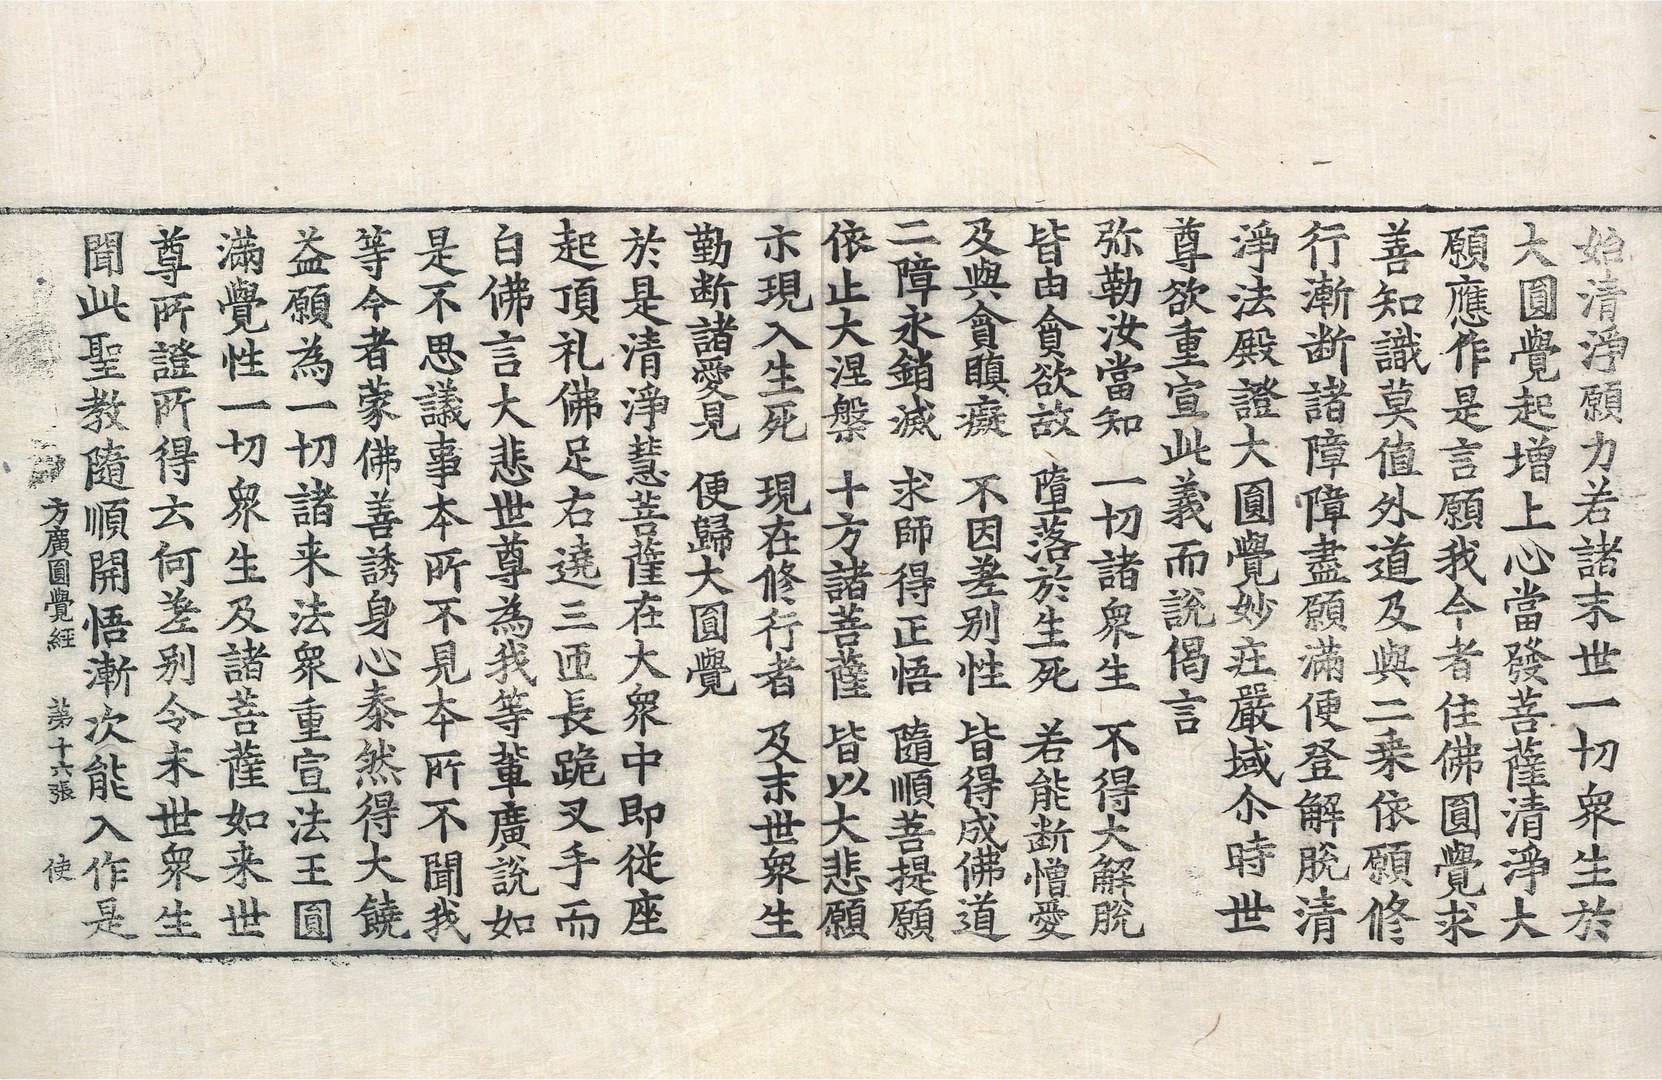 始清淨願力若諸末世一切衆生於
大圓覺起增上心當發菩薩清淨大
願應作是言願我今者住佛圓覺求
善知識莫值外道及與二乗依願修
行漸断諸障障盡願滿便登解脫清
淨法殿證大圓覺妙莊嚴域尒時世
尊欲重宣此義而說偈言
弥勒汝當知 一切諸衆生 不得大解脫
皆由貪欲故 墮落於生死 若能断憎愛
及與貪瞋癡 不因差別性 皆得成佛道
二障永銷滅 求師得正悟 隨順菩提願
依止大涅槃 十方諸菩薩 皆以大悲願
示現入生死 現在修行者 及末世衆生
勤断諸愛見 便歸大圓覺
於是清淨慧菩薩在大衆中即從座
起頂礼佛足右遶三匝長跪叉手而
白佛言大悲世尊為我等輩廣說如
是不思議事本所不見本所不聞我
等今者蒙佛善誘身心泰然得大饒
益願為一切諸来法衆重宣法王圓
滿覺性一切衆生及諸菩薩如来世
尊所證所得云何差別令末世衆生
聞此聖教隨順開悟漸次能入作是
方廣圓覺經 第十六張 使